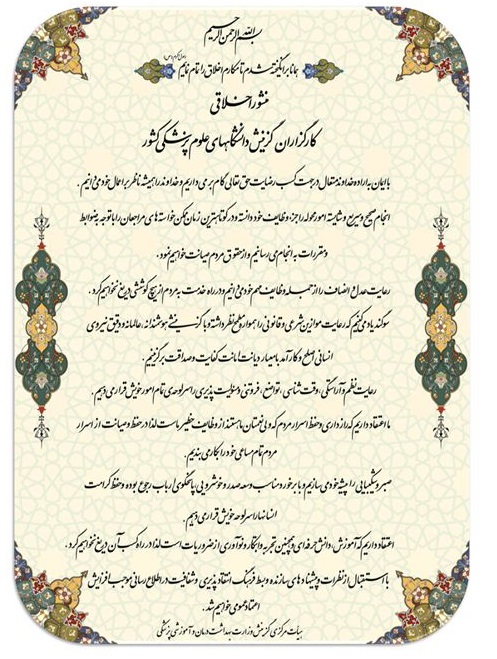 بسم الله الرحمن الرحیم
همانا برانگیخته شدم تا مکارم اخلاق را تمام نمایم
منشور اخلاقی
کارگزاران گزینش دانشگاههای علوم پزشکی کشور
با ایمان به اراده خداوند متعال در جهت کسب رضایت حق تعالی گام برمی داریم و خداوند را همیشه ناظر بر اعمال خود می دانیم.
انجام صحیح و سریع و شایسته امور محوله را جزء وظایف خود دانسته و در کوتاهترین زمان ممکن خواسته های مراجعان را با توجه به ضوابط
و مقررات به انجام می رسانیم و از حقوق مردم صیانت خواهیم نمود.
رعایت عدل و انصاف را از جمله وظایف مهم خود می دانیم و در راه خدمت به مردم از هیچ کوششی دریغ نخواهیم کرد.
سوگند یاد می کنیم که رعایت موازین شرعی و قانونی را همواره مطمح نظر داشته و با گزینشی هوشمندانه، عالمانه و دقیق نیروی
انسانی اصلح و کارآمد با معیار دیانت امانت کفایت و صداقت برگزینیم.
رعایت نظم و آراستگی، وقت شناسی، تواضع، فروتنی و مسئولیت پذیری را سرلوحه ی تمام امور خویش قرار می دهیم.
ما اعتقاد داریم که رازداری و حفظ اسرار مردم که ولی نعمتان ما هستند از وظایف خطیر ماست لذا در حفظ و صیانت از اسرار
مردم تمام مساعی خود را بکار می بندیم.
صبر و شکیبایی را پیشه خود می سازیم و با برخورد مناسب و سعه صدر و خوشرویی پاسخگوی ارباب رجوع بوده و حفظ کرامت
انسانها را سرلوحه خویش قرار می دهیم.
اعتقاد داریم که آموزش، دانش حرفه ای و همچنین تجربه و ابتکار و نوآوری از ضروریات است لذا در راه کسب آن دریغ نخواهیم کرد.
با استقبال از نظرات و پیشنهادهای سازنده و بسط فرهنگ انتقادپذیری و شفافیت در اطلاع رسانی موجب افزایش
اعتماد عمومی خواهیم شد.
هیأت مرکزی گزینش وزارت بهداشت درمان و آموزش پزشکی